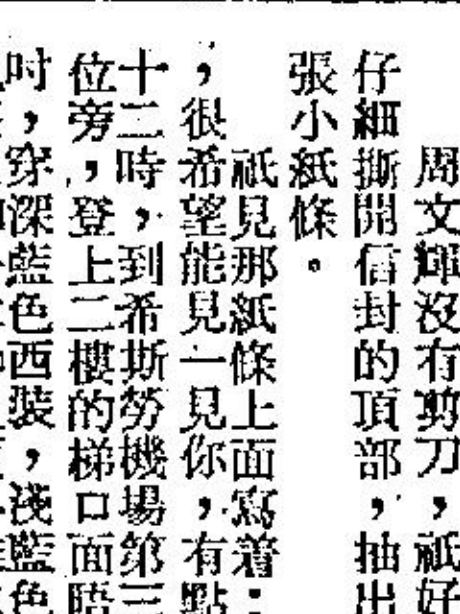 周文輝沒有剪刀，祇好
仔細撕開信封的頂部，抽出
張小紙條。
祇見那紙條上面寫着：
，很希望能見一見你，有點
十二時，到希斯勞機場第三
位旁，登上二樓的梯口面晤
吋，穿深藍色西裝，淺藍色